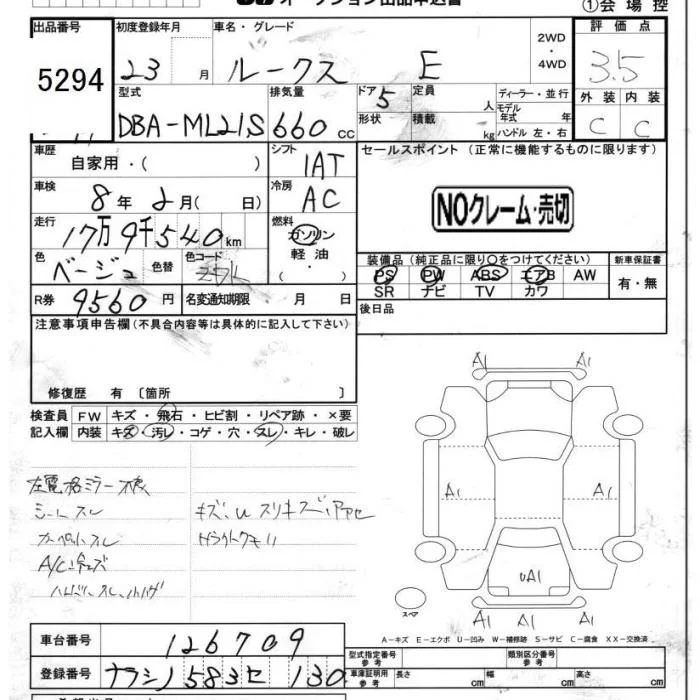 オークション出品申込書
①会場控
出品番号 初度登録年月 車名・グレード 2WD・4WD 評価点
5294 23 月 ルークス E 3.5
型式 排気量 ドア 5 定員 人 ディーラー・並行 外装 内装
DBA-ML21S 660 cc 形状 積載 kg モデル年式 年 ハンドル 左・右 C C
車歴 自家用・( ) シフト 1AT セールスポイント (正常に機能するものに限ります)
車検 8年 2月( 日) 冷房 AC NOクレーム・売切
走行 17万9千540km 燃料 ガソリン 軽油・( )
色 ベージュ 色替 色コード 装備品 (純正品に限り○をつけてください) 新車保証書
PS PW ABS エアB AW 有・無
SR ナビ TV カワ
R券 9560円 名変通知期限 月 日 後日品
注意事項申告欄 (不具合内容等は具体的に記入して下さい)
修復歴 有 〔箇所 〕
検査員 FW キズ・飛石・ヒビ割・リペア跡・×要
記入欄 内装 キズ・汚レ・コゲ・穴・スレ・キレ・破レ
A1 A1
左電格ミラー不良
シートスレ
カーペットスレ
A1 A1
UA1
スペア
A1 A1 A1
A-キズ E-エクボ U-凹み W-補修跡 S-サビ C-腐食 XX-交換済
車台番号 126709 型式指定番号 参考 類別区分番号 参考
登録番号 ナラシノ 583 セ 130 車庫証明用 参考 長さ cm 幅 cm 高さ cm